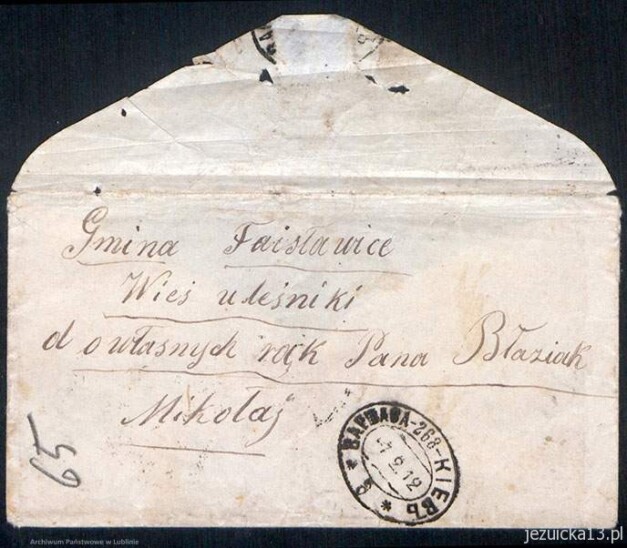 Gmina Faisławice
Wieś uleśniki
do własnych rąk Pana Błaziak
Mikołaj
65
ВАРШАВА-268-КІЕВЪ
7.2.12
Archiwum Państwowe w Lublinie
jezuicka13.pl